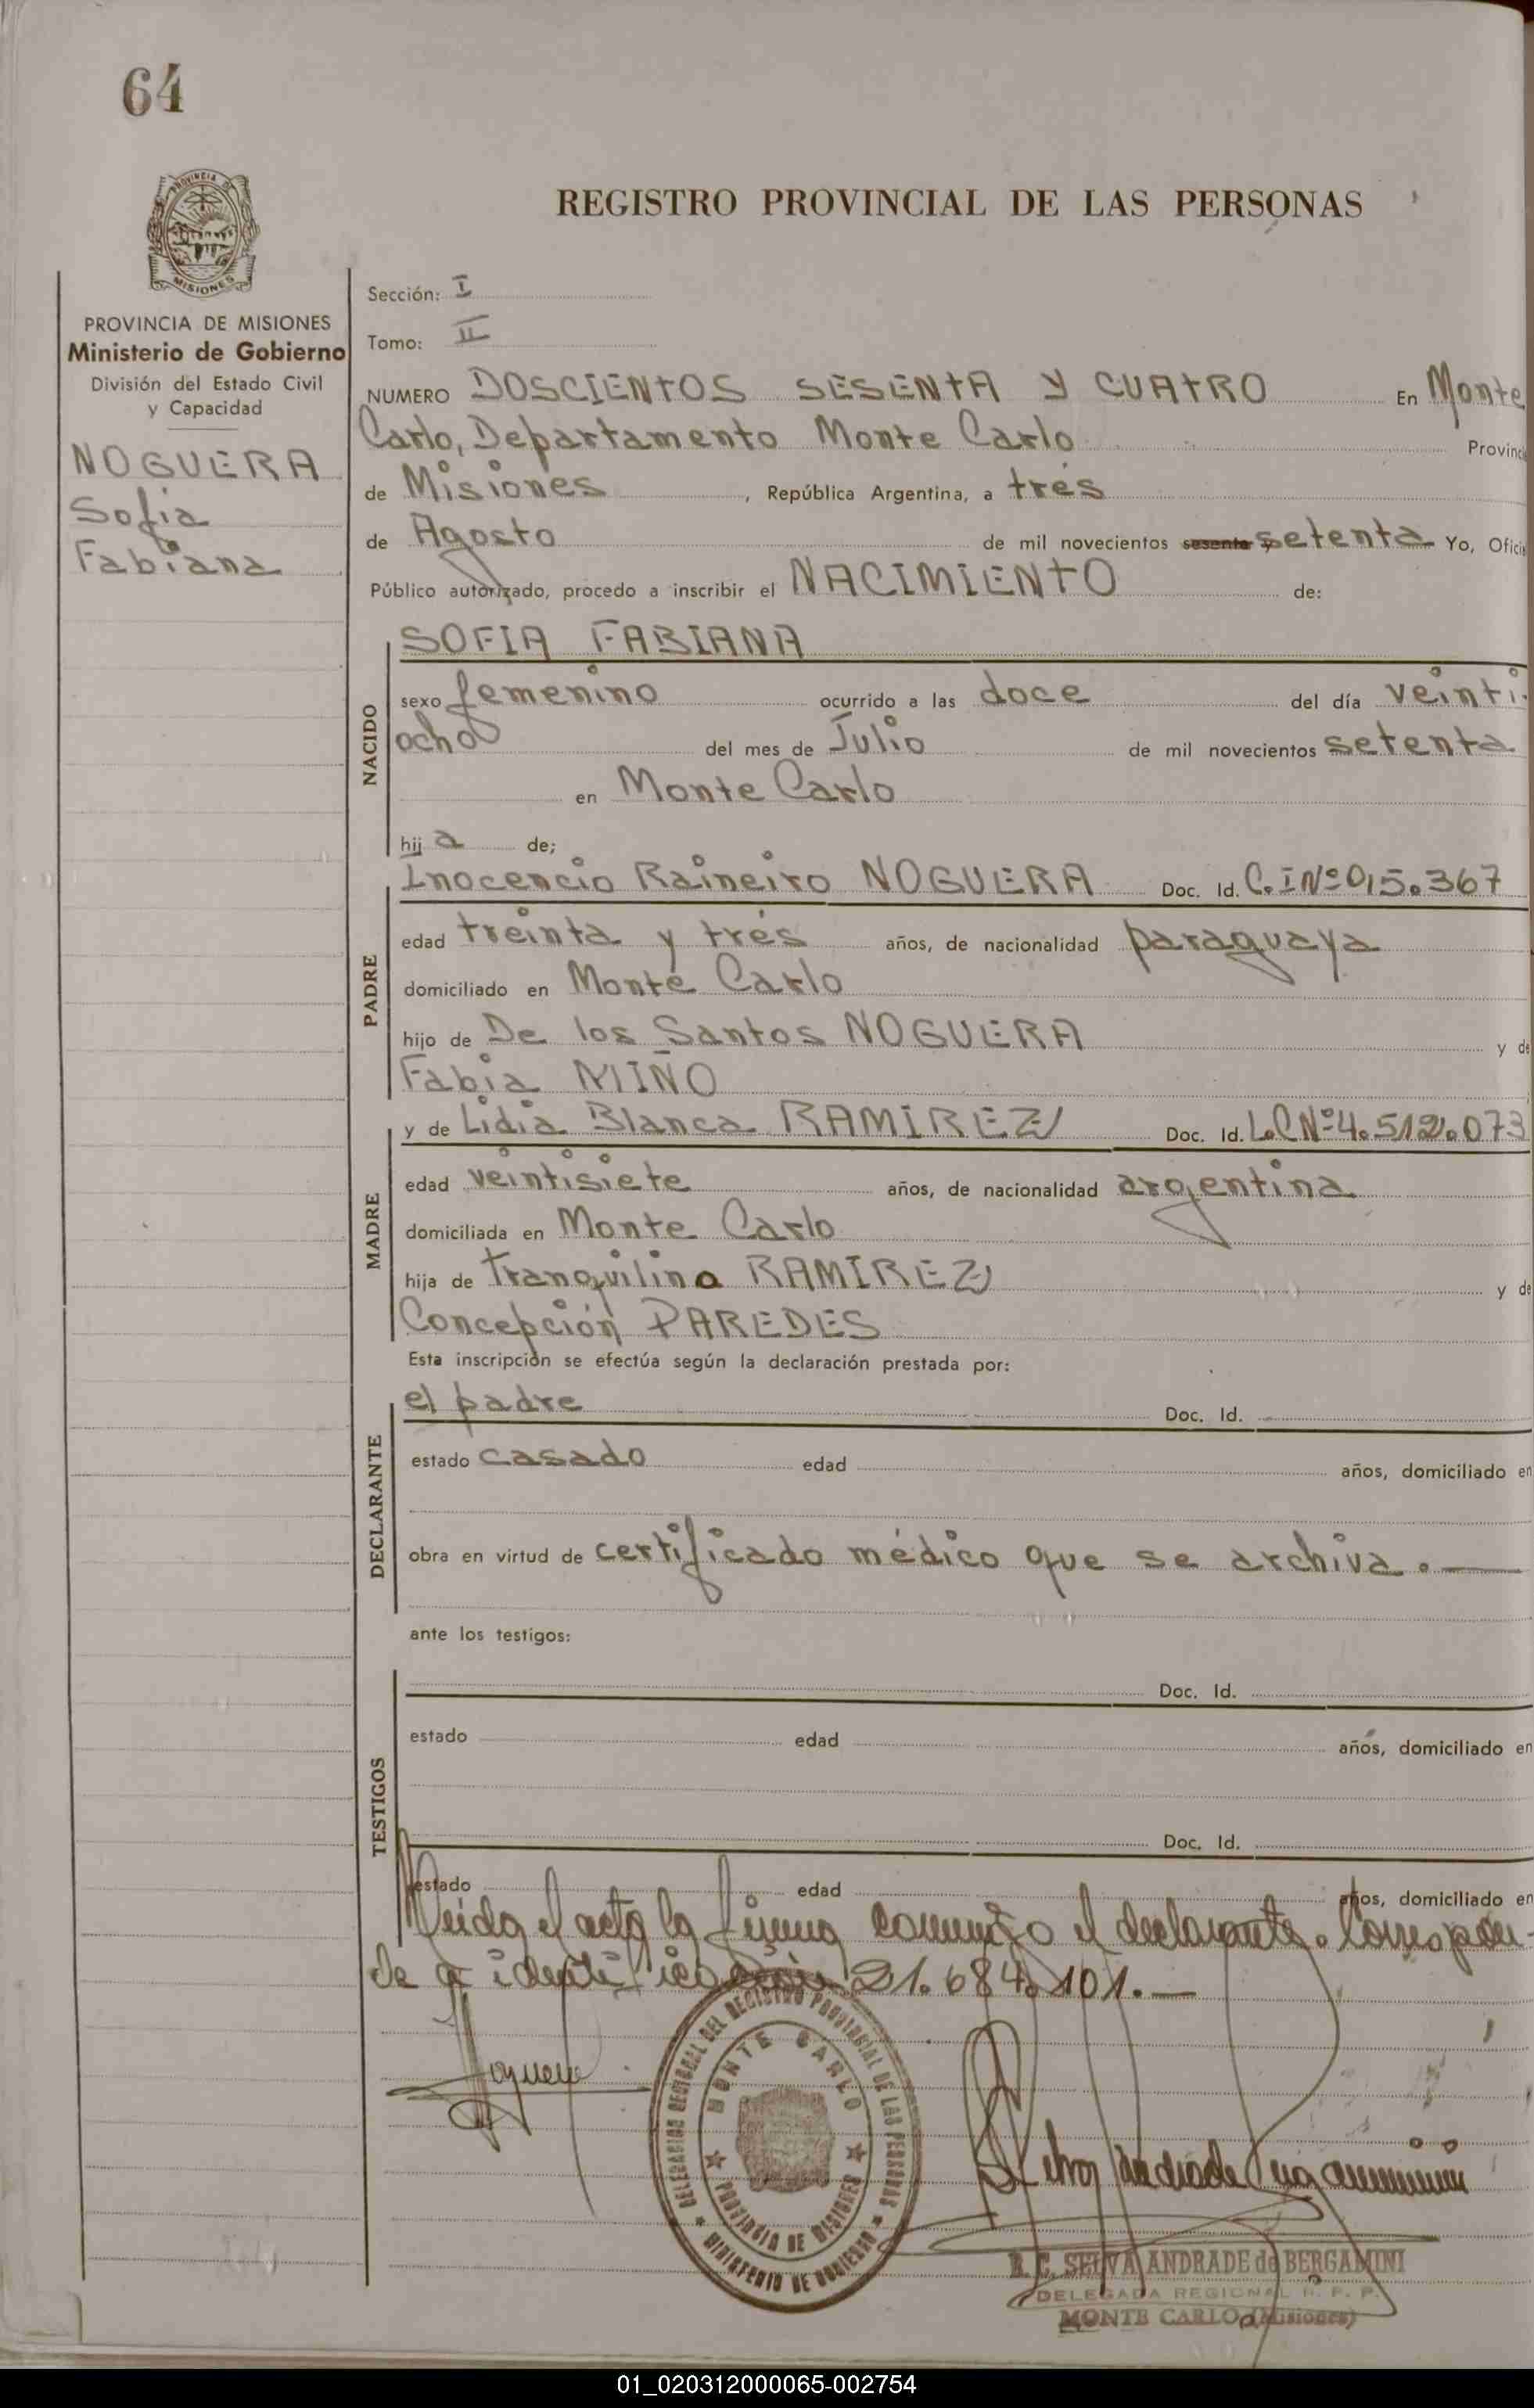 64
REGISTRO PROVINCIAL DE LAS PERSONAS
PROVINCIA DE MISIONES
Ministerio de Gobierno
División del Estado Civil
y Capacidad
NOGUERA
Sofia
Fabiana
Sección: I
Tomo: II
NUMERO DOSCIENTOS SESENTA Y CUATRO En Monte
Carlo, Departamento Monte Carlo Provinci
de Misiones, República Argentina, a trés
de Agosto de mil novecientos sesenta y setenta Yo, Ofici
Público autorizado, procedo a inscribir el NACIMIENTO de:
NACIDO
SOFIA FABIANA
sexo femenino ocurrido a las doce del día veinti-
ocho del mes de Julio de mil novecientos setenta
en Monte Carlo
hij a de;
PADRE
Inocencio Raineiro NOGUERA Doc. Id. C.I Nº 015.367
edad treinta y trés años, de nacionalidad paraguaya
domiciliado en Monte Carlo
hijo de De los Santos NOGUERA y de
Fabia MIÑO
MADRE
y de Lidia Blanca RAMIREZ Doc. Id. L.C Nº 4.512.073
edad veintisiete años, de nacionalidad argentina
domiciliada en Monte Carlo
hija de Tranquilino RAMIREZ y de
Concepción PAREDES
Esta inscripción se efectúa según la declaración prestada por:
DECLARANTE
el padre Doc. Id.
estado casado edad años, domiciliado en
obra en virtud de certificado médico que se archiva.—
ante los testigos:
TESTIGOS
Doc. Id.
estado edad años, domiciliado en
Doc. Id.
estado edad años, domiciliado en
Leida el acta la firma conmigo el declarante. Correspon-
de a identificación 21.684.101.—
DELEGACION REGIONAL DEL REGISTRO PROVINCIAL DE LAS PERSONAS
MONTE CARLO
PROVINCIA DE MISIONES
MINISTERIO DE GOBIERNO
B. C. SELVA ANDRADE de BERGAMINI
DELEGADA REGIONAL R. P. P.
MONTE CARLO (Misiones)
01_020312000065-002754